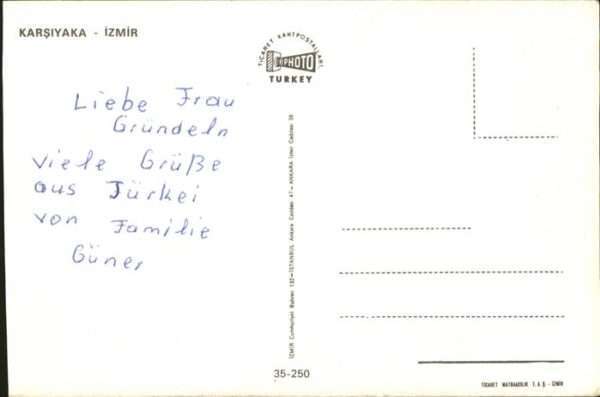 KARŞIYAKA - İZMİR
TİCARET KARTPOSTALLARI
PHOTO
TURKEY
Liebe Frau
Gründeln
viele Grüße
aus Türkei
von Familie
Güner
İZMİR Cumhuriyet Bulvarı
İSTANBUL Ankara Caddesi
ANKARA
35-250
TİCARET MATBAACILIK T.A.Ş. - İZMİR